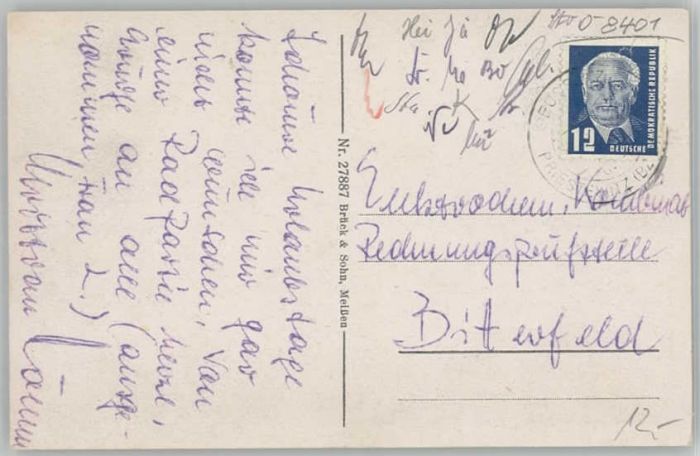 Schönere Urlaubstage
konnte ich mir gar
nicht wünschen. Von
einer Radpartie herzl.
Grüße an alle (ausge-
nommen Frau L.)
Nr. 27887 Brück & Sohn, Meißen
Hei Ja
Bö
StO O-8401
12
DEUTSCHE
DEMOKRATISCHE REPUBLIK
Elektrochem. Kombinat
Rechnungsprüfstelle
Bitterfeld
12,-